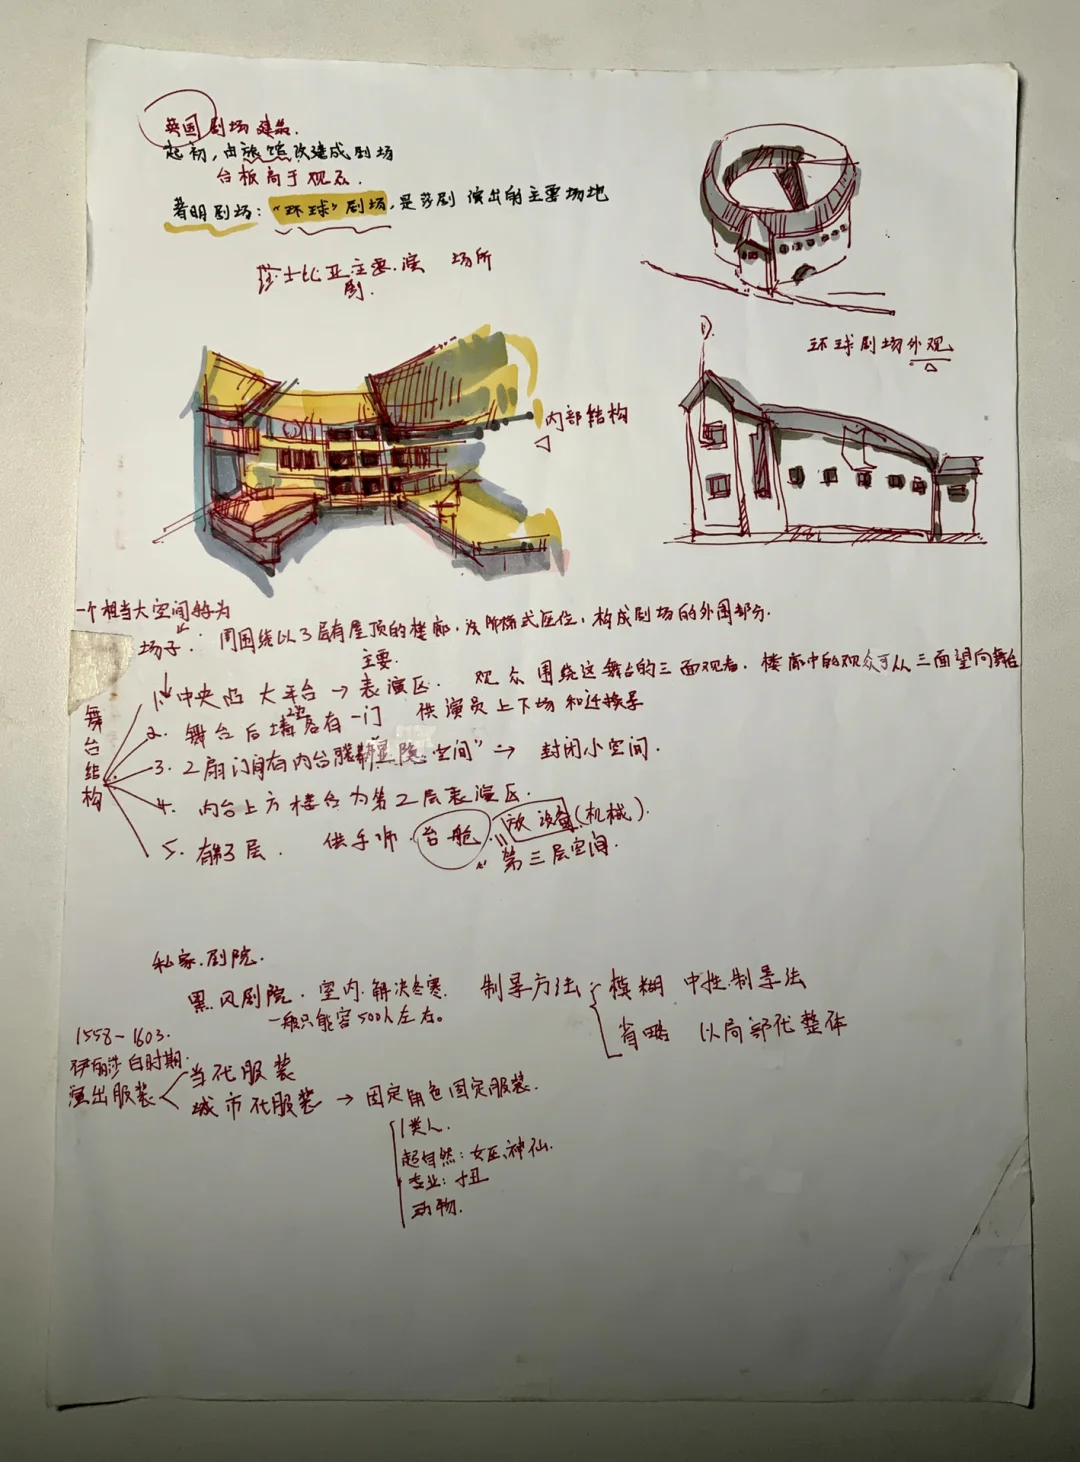 英国剧场建筑.
起初,由旅馆改造成剧场
台板高于观众.
著明剧场:"环球"剧场,是莎剧演出的主要场地
莎士比亚主要.演 场所
剧.
环球剧场外观
内部结构
一个相当大空间转为
场子: 周围绕以3层有屋顶的楼廊.设阶梯式座位,构成剧场的外围部分.
主要.
舞台结构
1.中央凸大平台→表演区. 观众围绕这舞台的三面观看.楼廊中的观众可从三面望向舞台
2.舞台后墙各有一门 供演员上下场和迁换景
3.2扇门间有内台 空间"→ 封闭小空间.
4.内台上方楼台为第2层表演区.
5.有第3层. 供乐师.台舱. 放设备(机械).
第三层空间.
私家.剧院.
黑风剧院.室内.解决冬寒. 制景方法 模糊 中性.制景法
一般只能容500人左右。
省略 以局部代整体
1558-1603.
伊丽莎白时期.
演出服装 当代服装
城市代服装→固定角色固定服装.
1类人.
超自然:女巫、神仙.
专业:小丑
动物.